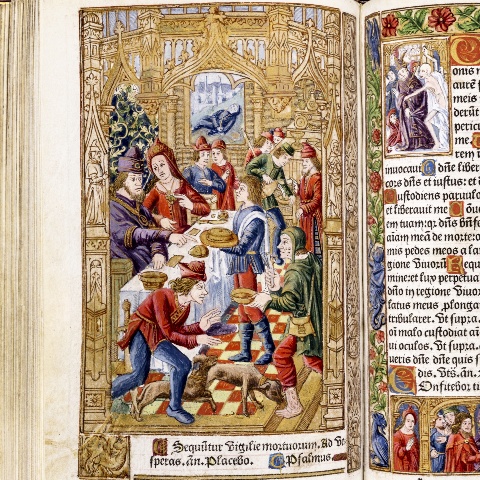 Sequũtur Vigilie mortuorum. Ad ve
speras. añ. Placebo. Psalmus.
onis m
aurē
meis
derũt
pericu
me.
rem
inuocaui: O dñe liber
cors dñs et iustus: et d
Custodiens paruulo
et liberauit me
em tuam: qr dñs bñf
aĩam meã de morte: o
mis pedes meos a la
gione viuorũ. Requi
minet lux perpetua
dño in regione viuo
latus meus prolonga
tribularet. Vt supra.
oñ malo custodiat añ
ui oculos. Vt supra.
ueris dñe dñe quis s
dis. Vs. añ.
Confitebor ti